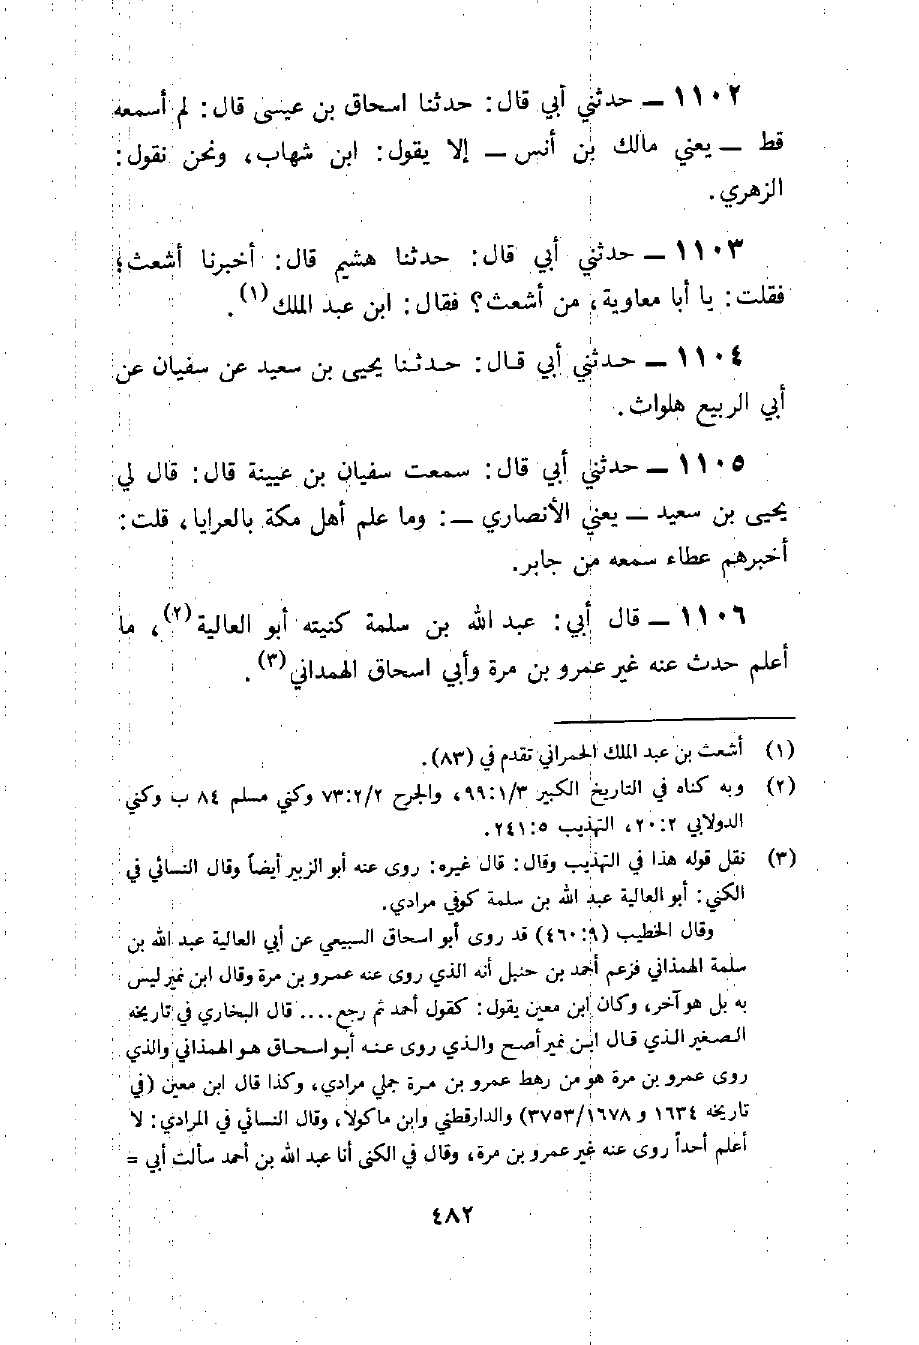 ١١٠٢ ــ حدثني أبي قال: حدثنا اسحاق بن عيسى قال: لم أسمعه
قط ــ يعني مالك بن أنس ــ إلا يقول: ابن شهاب، ونحن نقول:
الزهري.
١١٠٣ ــ حدثني أبي قال: حدثنا هشيم قال: أخبرنا أشعث؛
فقلت: يا أبا معاوية، من أشعث؟ فقال: ابن عبد الملك(١).
١١٠٤ ــ حدثني أبي قال: حدثنا يحيى بن سعيد عن سفيان عن
أبي الربيع هلواث.
١١٠٥ ــ حدثني أبي قال: سمعت سفيان بن عيينة قال: قال لي
يحيى بن سعيد ــ يعني الأنصاري ــ: وما علم أهل مكة بالعرايا، قلت:
أخبرهم عطاء سمعه من جابر.
١١٠٦ ــ قال أبي: عبد الله بن سلمة كنيته أبو العالية(٢)، ما
أعلم حدث عنه غير عمرو بن مرة وأبي اسحاق الهمداني(٣).
(١) أشعث بن عبد الملك الحمراني تقدم في (٨٣).
(٢) وبه كناه في التاريخ الكبير ٩٩:١/٣، والجرح ٧٣:٢/٢ وكني مسلم ٨٤ ب وكني
الدولابي ٢٠:٢، التهذيب ٢٤١:٥.
(٣) نقل قوله هذا في التهذيب وقال: قال غيره: روى عنه أبو الزبير أيضاً وقال النسائي في
الكني: أبو العالية عبد الله بن سلمة كوفي مرادي.
وقال الخطيب (٤٦٠:٩) قد روى أبو اسحاق السبيعي عن أبي العالية عبد الله بن
سلمة الهمذاني فزعم أحمد بن حنبل أنه الذي روى عنه عمرو بن مرة وقال ابن نمير ليس
به بل هو آخر، وكان ابن معين يقول: كقول أحمد ثم رجع.... قال البخاري في تاريخه
الصغير الذي قال ابن نمير أصح والذي روى عنه أبو اسحاق هو الهمذاني والذي
روى عمرو بن مرة هو من رهط عمرو بن مرة جملي مرادي، وكذا قال ابن معين (في
تاريخه ١٦٣٤ و ٣٧٥٣/١٦٧٨) والدارقطني وابن ماكولا، وقال النسائي في المرادي: لا
أعلم أحداً روى عنه غير عمرو بن مرة، وقال في الكنى أنا عبد الله بن أحمد سألت أبي =
٤٨٢